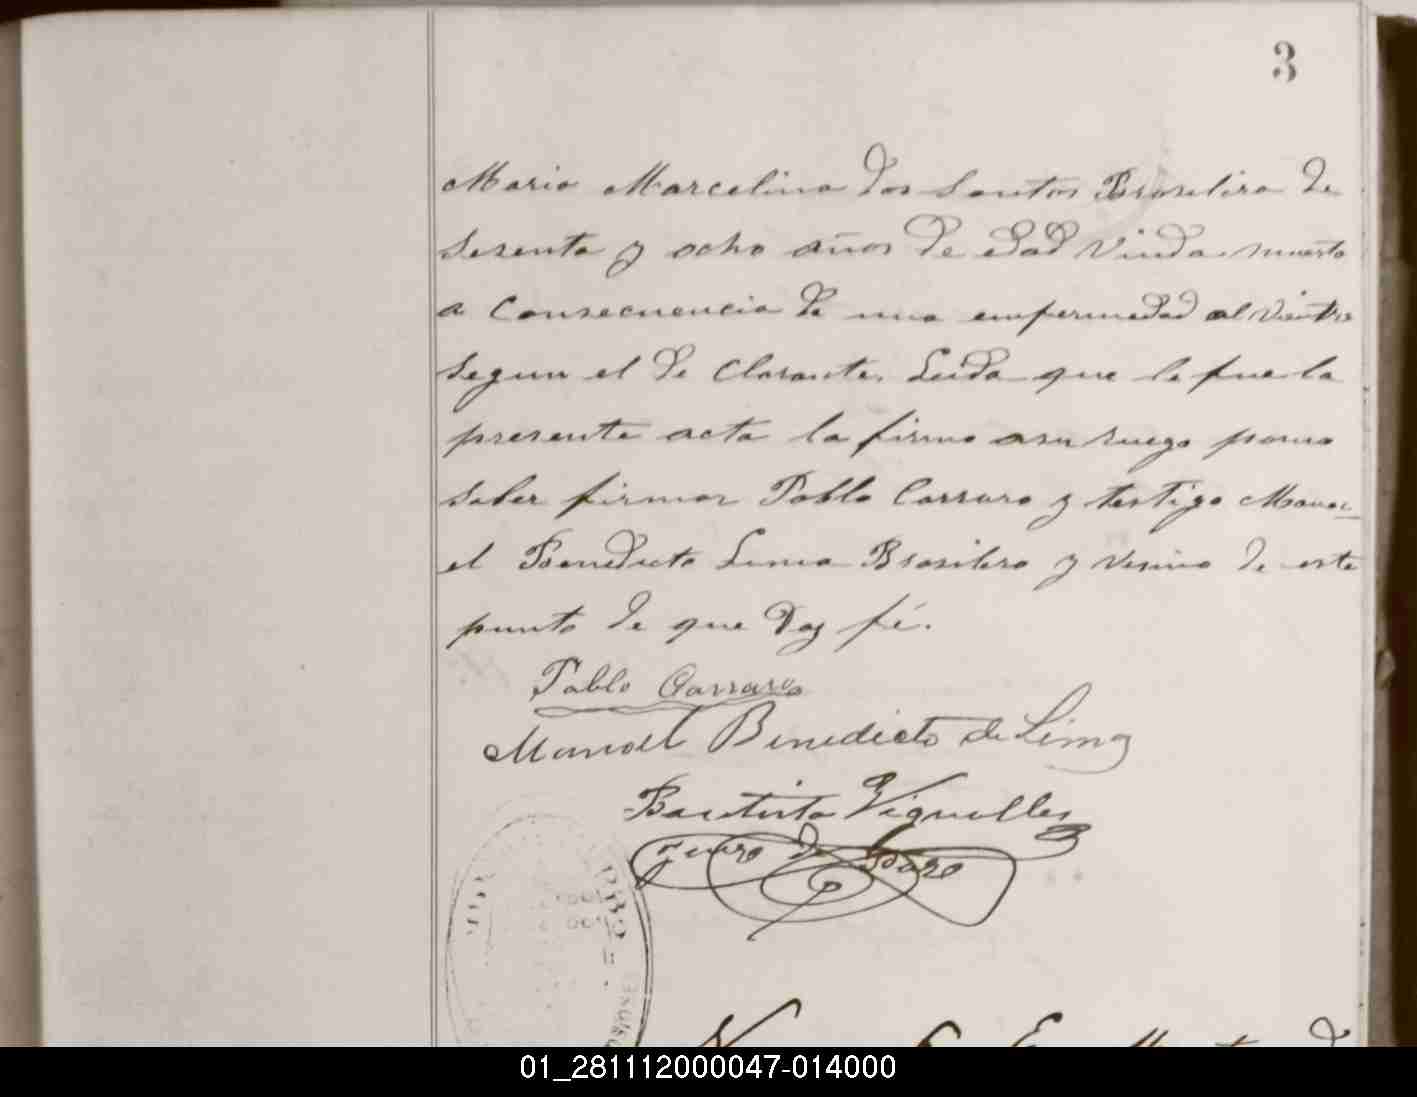 3
Maria Marcelina dos Santos Brasilira de
sesenta y ocho años de edad Viuda muerta
a Consecuencia de una enfermedad al Vientre
segun el de Clarante. Leida que le fue la
presente acta la firmo asu ruego porno
saber firmar Pablo Carraro y testigo Mano-
el Benedicto Lima Brasilero y vesino de este
punto de que Doy fé.
Pablo Carraro
Manoel Benedicto de Lima
Bautista Vignolles
Juez de
01_281112000047-014000